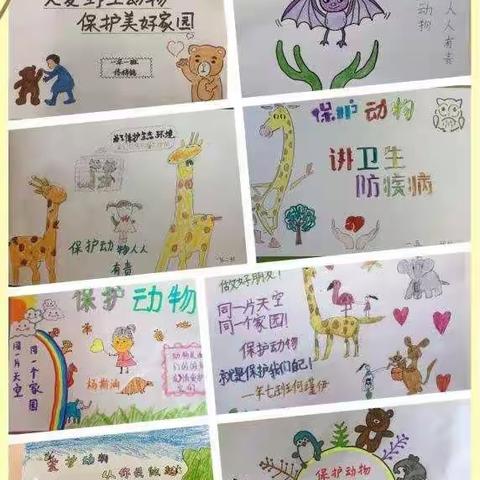 保护美好家园
一年一班
动物
人人有责
为了保护生态环境
保护动物人人
有责
保护动物
讲卫生
防疾病
保护动物
同一片天空
同一个家园
杨斯涵
做好朋友!
同一片天空
同一个家园!
保护动物
就是保护我们自己!
保护动物
从你我做起
保护动物